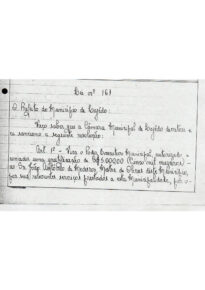 Lei nº 161
O Prefeito do Município de Lagêdo:
Faço saber que a Câmara Municipal de Lagêdo decretou e
eu sanciono a seguinte resolução:
Art. 1º - Fica o Poder Executivo Municipal, autorizado a
uma gratificação de Cr$ 5.000,00 (cinco mil cruzeiros)
ao Sr. João de Medeiros, de Obras deste Município,
por seus relevantes serviços prestados a esta Municipalidade,